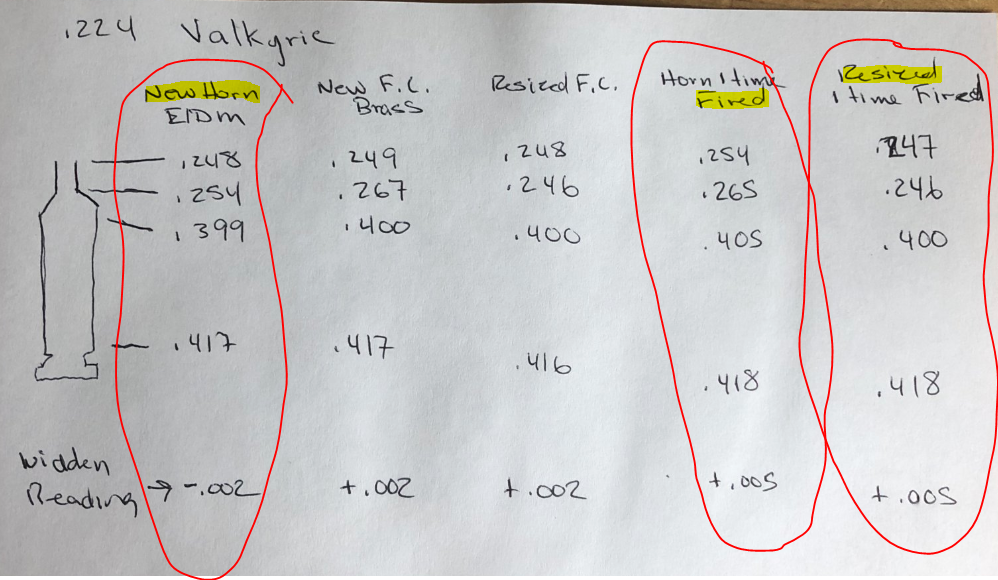 .224 Valkyrie
New Horn New F.C. Resized F.C. Horn 1 time Resized
EIDM Brass Fired 1 time Fired
.248 .249 .248 .254 .247
.254 .267 .246 .265 .246
.399 .400 .400 .405 .400
.417 .417 .416 .418 .418
Widden
Reading → -.002 +.002 +.002 +.005 +.005